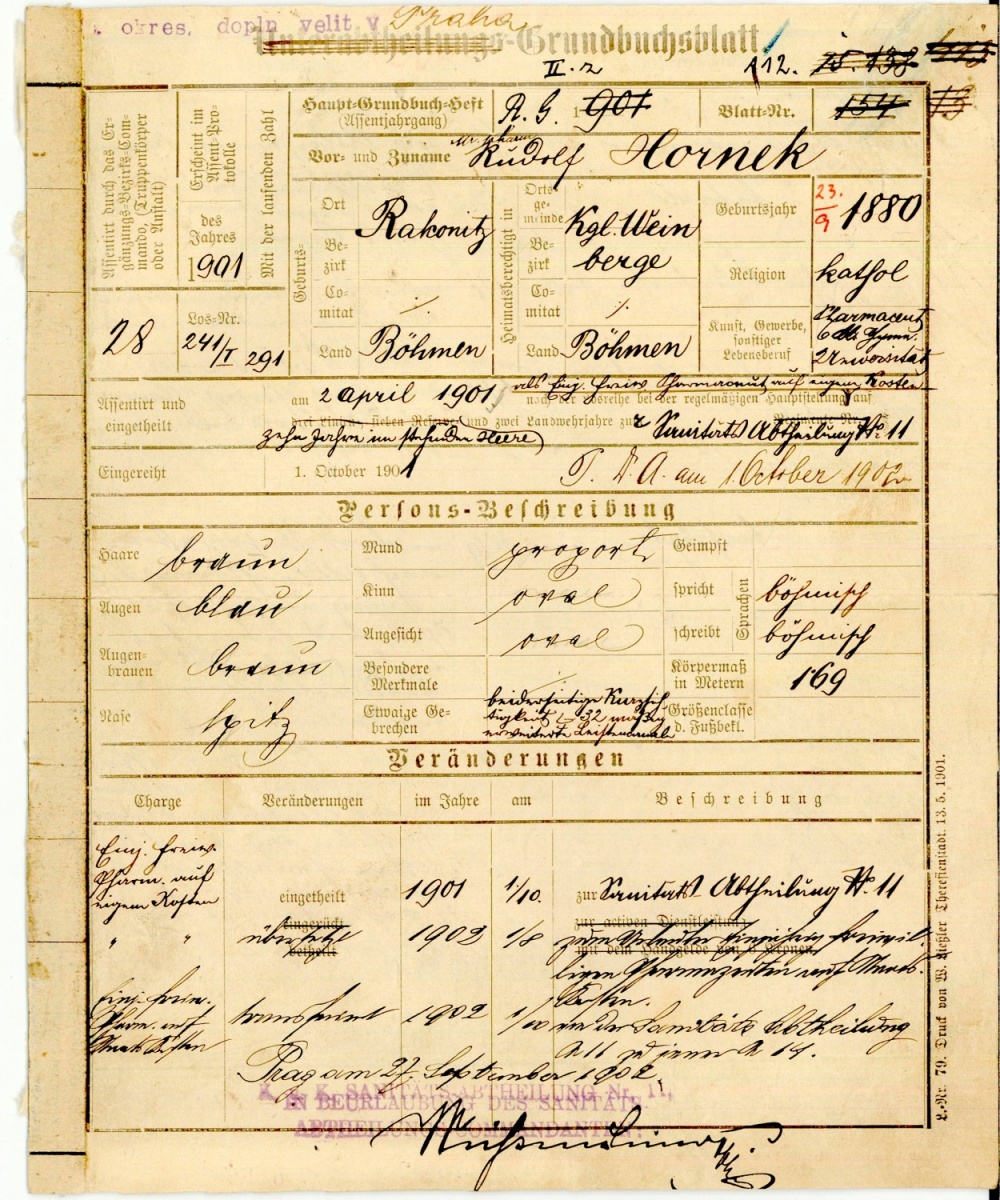 okres. dopln. velit. v Praha
Unterabtheilungs-Grundbuchsblatt
II. 2
112. 138
Assentirt durch das Ergänzungs-Bezirks-Commando, (Truppenkörper oder Anstalt)
28
Erscheint im Assent-Protokolle
des Jahres
1901
Mit der laufenden Zahl
Los-Nr.
241/I 291
Haupt-Grundbuch-Heft
(Assentjahrgang)
R. G. 1901
Blatt-Nr. 154
Vor- und Zuname Mr. pharm. Rudolf Hornek
Geburts-
Ort Rakonitz
Bezirk
Comitat ·/.
Land Böhmen
Heimatsberechtigt in
Ortsgemeinde Kgl. Wein
Bezirk berge
Comitat ·/.
Land Böhmen
Geburtsjahr 23./9 1880
Religion kathol
Kunst, Gewerbe, sonstiger Lebensberuf
Pharmaceut
Universität
Assentirt und eingetheilt
am 2 April 1901 als Einj. freiw Pharmaceut auf eigene Kosten
nach der Losreihe bei der regelmäßigen Hauptstellung auf
drei Linien, sieben Reserve und zwei Landwehrjahre zur Sanitäts Abtheilung Nr. 11
zehn Jahre im stehenden Heere
Eingereiht
1. October 1901
T. D. A. am 1. October 1902
Persons-Beschreibung
Haare braun
Mund proport
Geimpft
Augen blau
Kinn oval
Sprachen
spricht böhmisch
Augenbrauen braun
Angesicht oval
schreibt böhmisch
Nase spitz
Besondere Merkmale ·/.
Körpermaß in Metern 169
Etwaige Gebrechen
beiderseitige Kurzsich
tigkeit 32 mäßig
erweiterte Leistenkanale
Größenclasse d. Fußbekl.
Veränderungen
Charge Veränderungen im Jahre am Beschreibung
Einj. freiw.
Pharm. auf
eigene Kosten
eingetheilt 1901 1/10. zur Sanitäts Abtheilung Nr. 11
eingerückt
zur activen Dienstleistung
" " übersetzt 1902 1/8 zum
betheilt
mit dem Handgelde von 6 Kronen
einjährig freiwil-
ligen Pharmazeuten auf Staats-
kosten.
Einj. freiw.
Pharm. auf
Staatskosten
transferirt 1902 1/10 von der Sanitäts Abtheilung
N 11 zu jener N 14.
Prag am 27. September 1902
K. u. K. SANITÄTS-ABTHEILUNG Nr. 11,
IN BEURLAUBUNG DES SANITÄTS-
ABTHEILUNGSCOMMANDANTEN:
L.-Nr. 79. Druck von W. Keßler Theresienstadt. 13. 5. 1901.